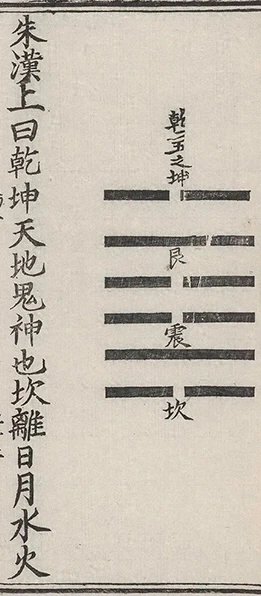 乾五之坤
艮
震
坎
朱漢上曰乾坤天地鬼神也坎離日月水火